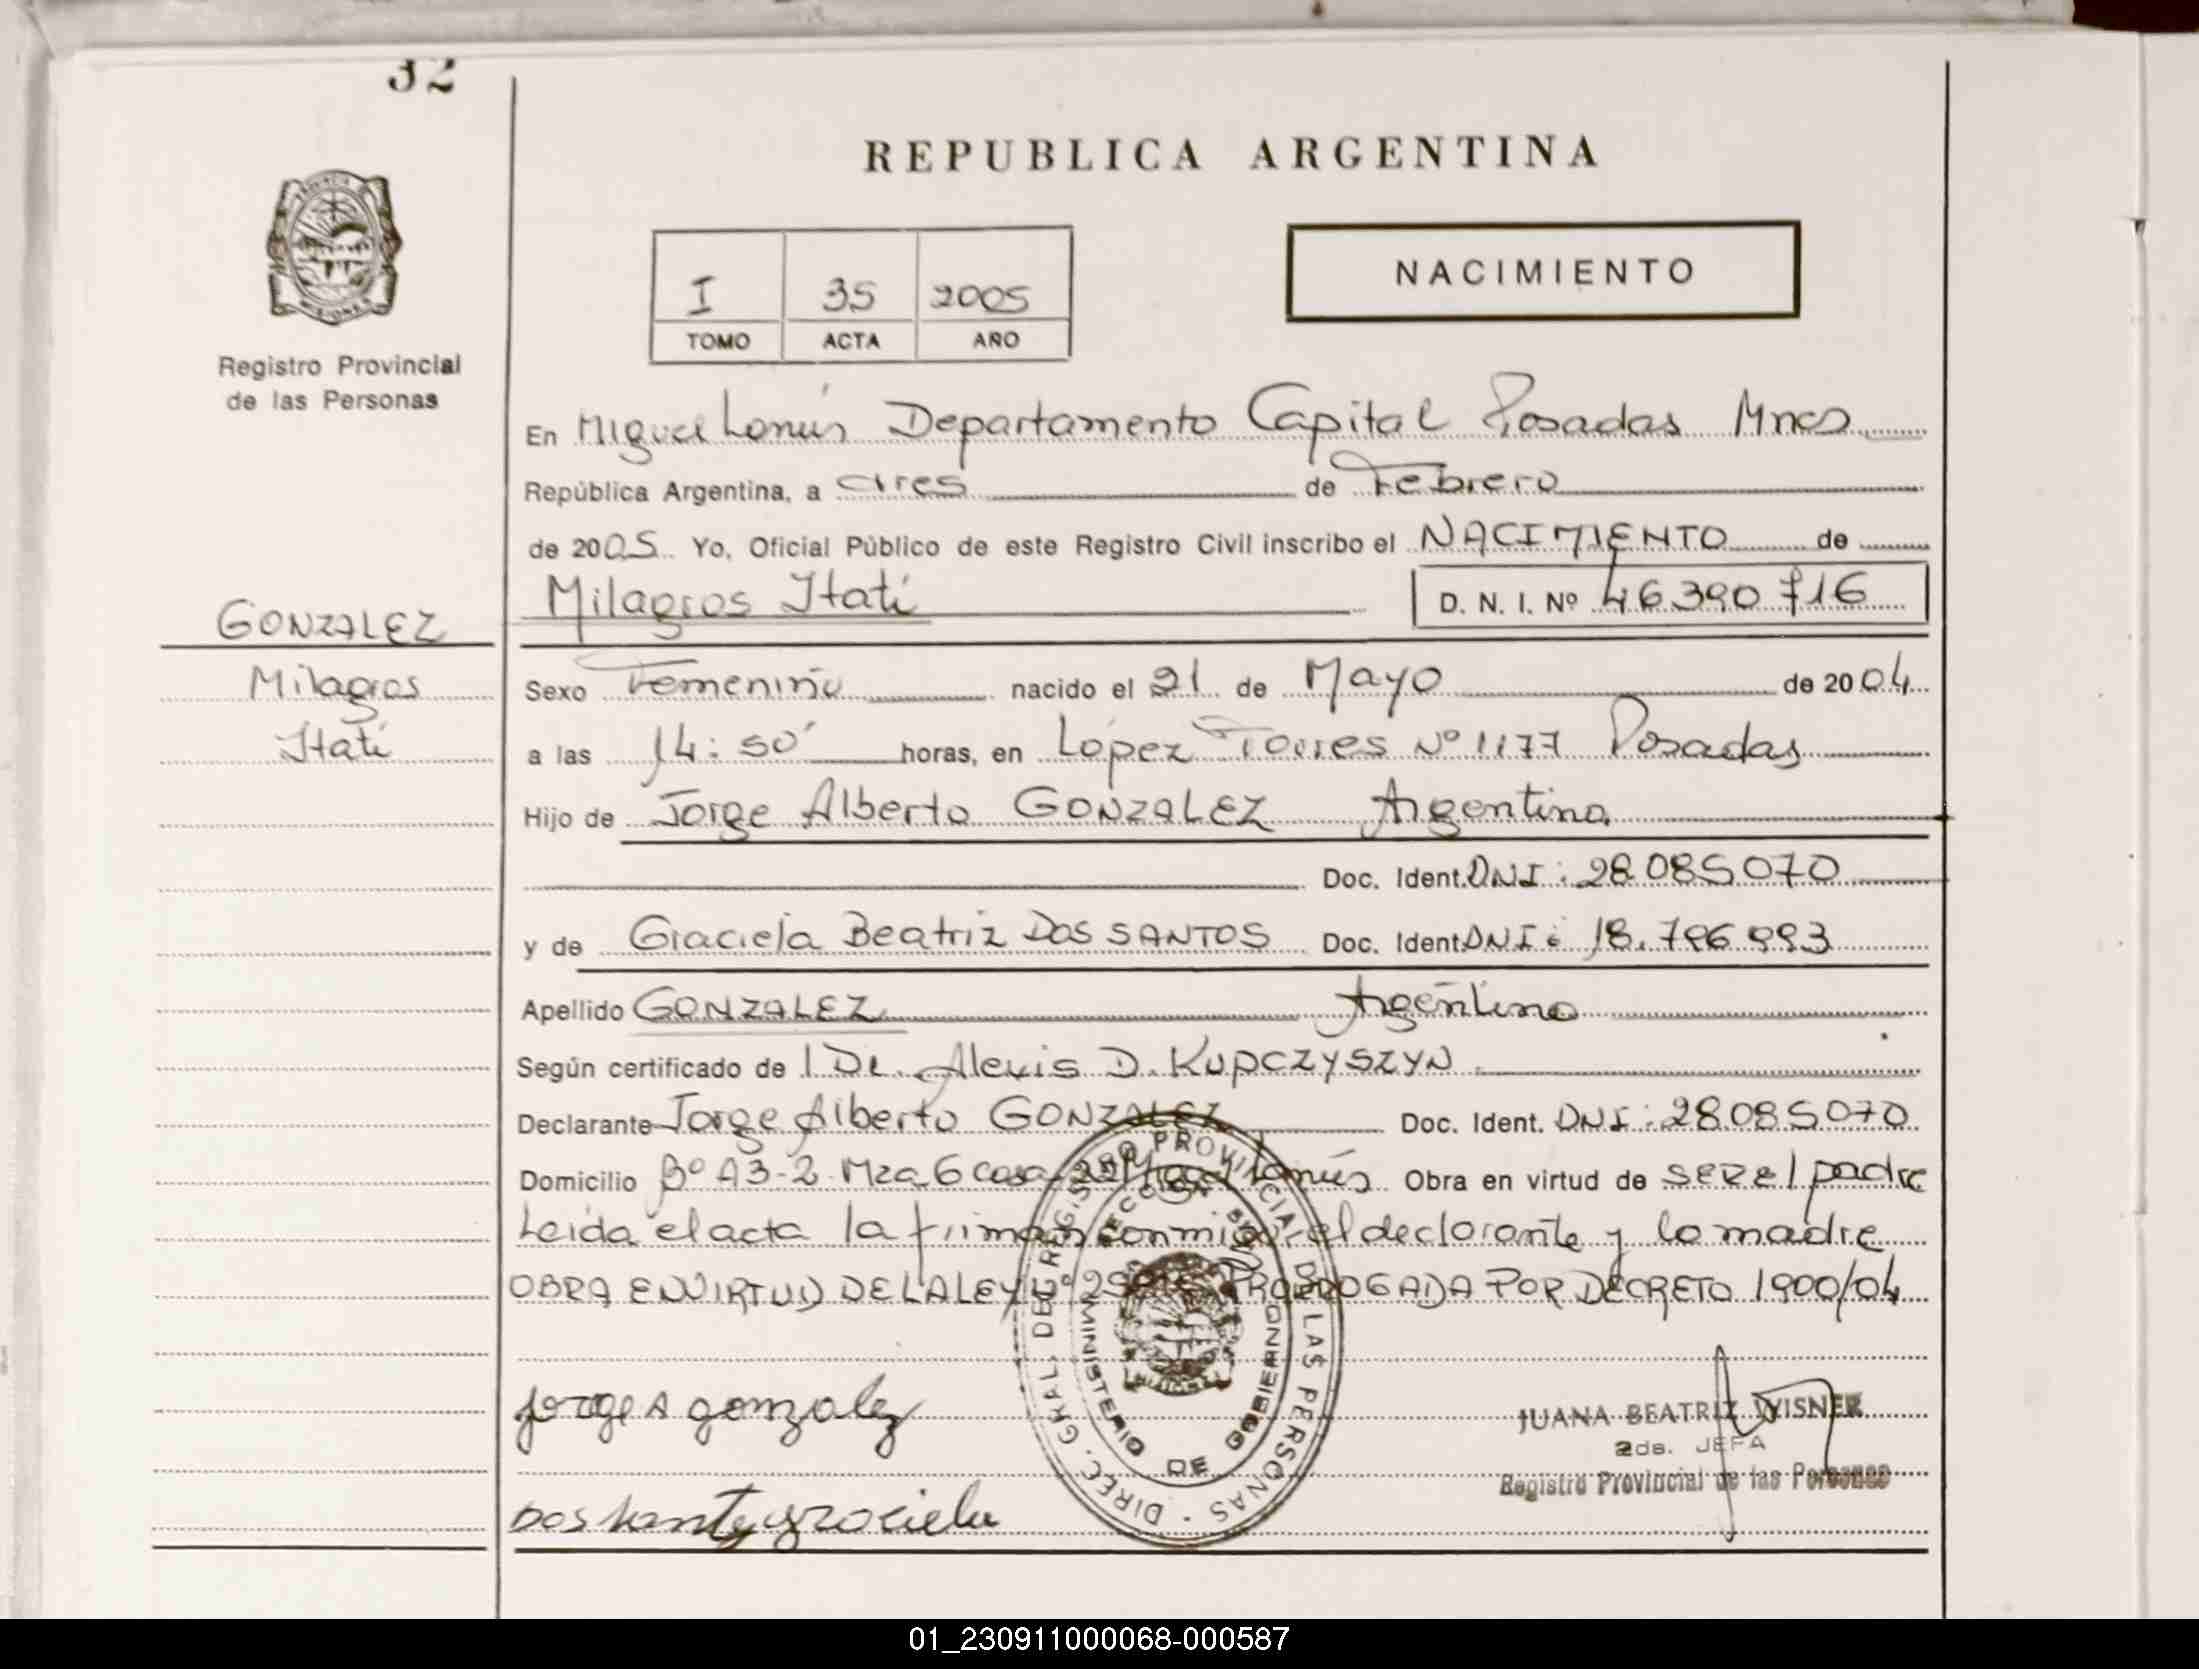 32
REPUBLICA ARGENTINA
NACIMIENTO
I 35 2005
TOMO ACTA AÑO
Registro Provincial
de las Personas
En Miguel Lanús Departamento Capital Posadas Mnes
República Argentina, a tres de Febrero
de 2005 Yo, Oficial Público de este Registro Civil inscribo el NACIMIENTO de
Milagros Itatí D. N. I. Nº 46390716
GONZALEZ
Milagros
Itatí
Sexo Femenino nacido el 21 de Mayo de 2004
a las 14:50' horas, en López Torres Nº 1177 Posadas
Hijo de Jorge Alberto GONZALEZ Argentino
Doc. Ident. DNI: 28085070
y de Graciela Beatriz DOS SANTOS Doc. Ident. DNI: 18.796.993
Apellido GONZALEZ Argentina
Según certificado de l Dr. Alexis D. KUPCZYSZYN
Declarante Jorge Alberto GONZALEZ Doc. Ident. DNI: 28085070
Domicilio Bº A3-2 Mza 6 casa Lanús Obra en virtud de ser el padre
Leida el acta la firman conmigo el declarante y la madre
OBRA EN VIRTUD DE LA LEY Nº PRORROGADA POR DECRETO 1900/04
Jorge A gonzalez
Dos Santos graciela
DIREC. GRAL. DEL REGISTRO PROVINCIAL DE LAS PERSONAS
MINISTERIO DE GOBIERNO
MISIONES
JUANA BEATRIZ WISNER
2da. JEFA
Registro Provincial de las Personas
01_230911000068-000587